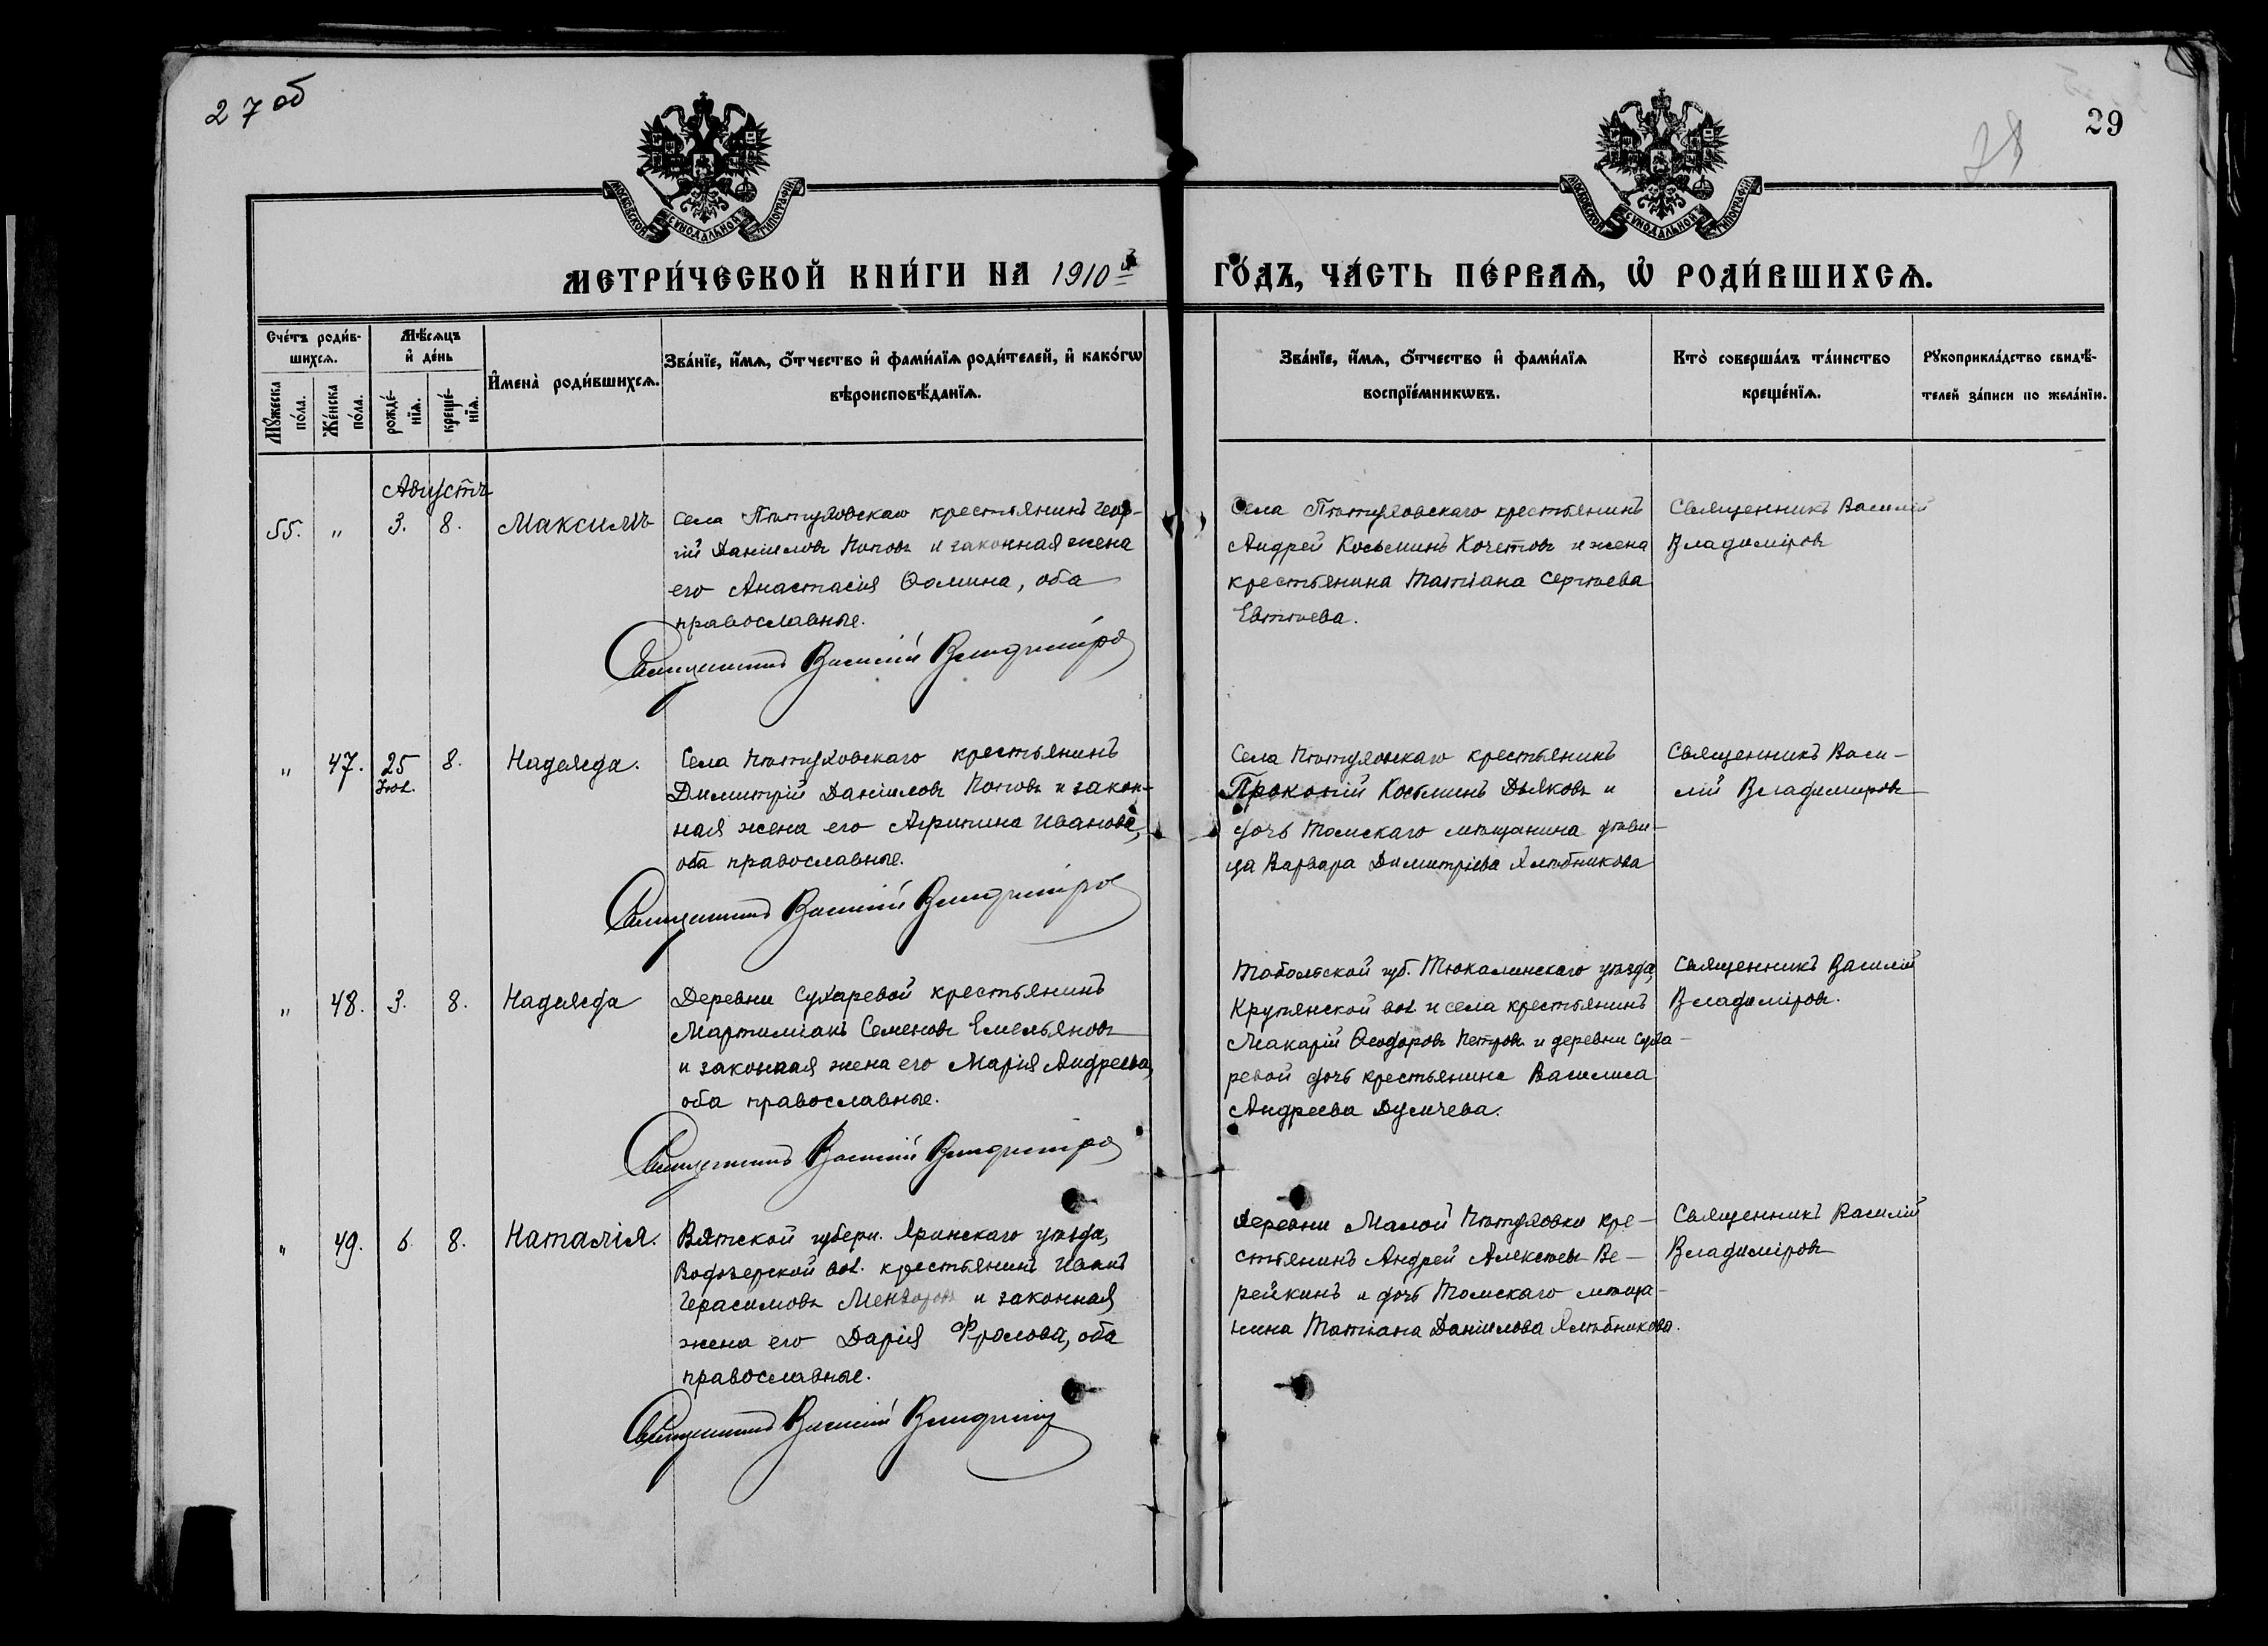 27 об
29
28
МОСКОВСКОЙ СѴНОДАЛЬНОЙ ТИПОГРАФІИ
МОСКОВСКОЙ СѴНОДАЛЬНОЙ ТИПОГРАФІИ
МЕТРИ́ЧЕСКОЙ КНИ́ГИ НА 1910й
ГО́ДЪ, ЧА́СТЬ ПЕ́РВАѦ, Ѡ҆ РОДИ́ВШИХСѦ.
Сче́тъ роди́в-
шихсѧ.
Мꙋ́жеска по́ла.
Же́нска по́ла.
Мѣ́сѧцъ
и҆ де́нь
рожде́-нїѧ.
креще́-нїѧ.
И҆мена̀ роди́вшихсѧ.
Зва́нїе, и҆́мѧ, ѻ҆́тчество и҆ фами́лїѧ роди́телей, и҆ како́гѡ
вѣроисповѣ́данїѧ.
Зва́нїе, и҆́мѧ, ѻ҆́тчество и҆ фами́лїѧ
воспрїе́мникѡвъ.
Кто̀ соверша́лъ та́инство
креще́нїѧ.
Рꙋкоприкла́дство свидѣ́-
телей за́писи по жела́нїю.
Августъ
55. " 3. 8. Максимъ
Села Пѣтуховскаго крестьянинъ Геор-
гій Даніиловъ Поповъ и законная жена
его Анастасія Ѳомина, оба
православные.
Священникъ Василій Владиміров
Села Пѣтуховскаго крестьянинъ
Андрей Косьминъ Кочетовъ и жена
крестьянина Татіана Сергѣева
Евтѣева.
Священникъ Василій
Владиміровъ
" 47. 25 Іюл. 8. Надежда.
Села Пѣтуховскаго крестьянинъ
Димитрій Даніиловъ Поповъ и закон-
ная жена его Агрипина Иванова,
оба православные.
Священникъ Василій Владиміров
Села Пѣтуховскаго крестьянинъ
Прокопій Космин Дьяковъ и
дочь Томскаго мѣщанина дѣви-
ца Варвара Димитріева Хлѣбникова
Священникъ Васи-
лій Владимировъ
" 48. 3. 8. Надежда
Деревни Сухаревой крестьянинъ
Мартиміанъ Семеновъ Емельяновъ
и законная жена его Марія Андреева,
оба православные.
Священникъ Василій Владиміров
Тобольской губ. Тюкалинскаго уѣзда,
Крутянской вол. и села крестьянинъ
Макарій Ѳеодоровъ Петровъ и деревни Суха-
ревой дочь крестьянина Василиса
Андреева Думчева.
Священникъ Василій
Владиміровъ.
" 49. 6. 8. Наталія.
Вятской губерн. Яранскаго уѣзда,
Водозерской вол. крестьянинъ Иванъ
Герасимовъ и законная
жена его Дарія Фролова, оба
православные.
Священникъ Василій Владимір
Деревни Малой Пѣтуховки кре-
стьянинъ Андрей Алексѣевъ Ве-
рейкинъ и дочь Томскаго мѣща-
нина Татіана Даніилова Хлѣбникова.
Священникъ Василій
Владиміровъ